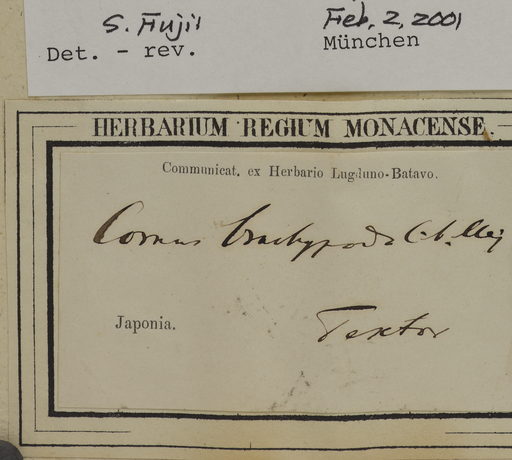 S. Fujii Feb. 2, 2001
Det. - rev. München
HERBARIUM REGIUM MONACENSE.
Communicat. ex Herbario Lugduno-Batavo.
Cornus brachypoda C.A. Mey
Japonia. Textor